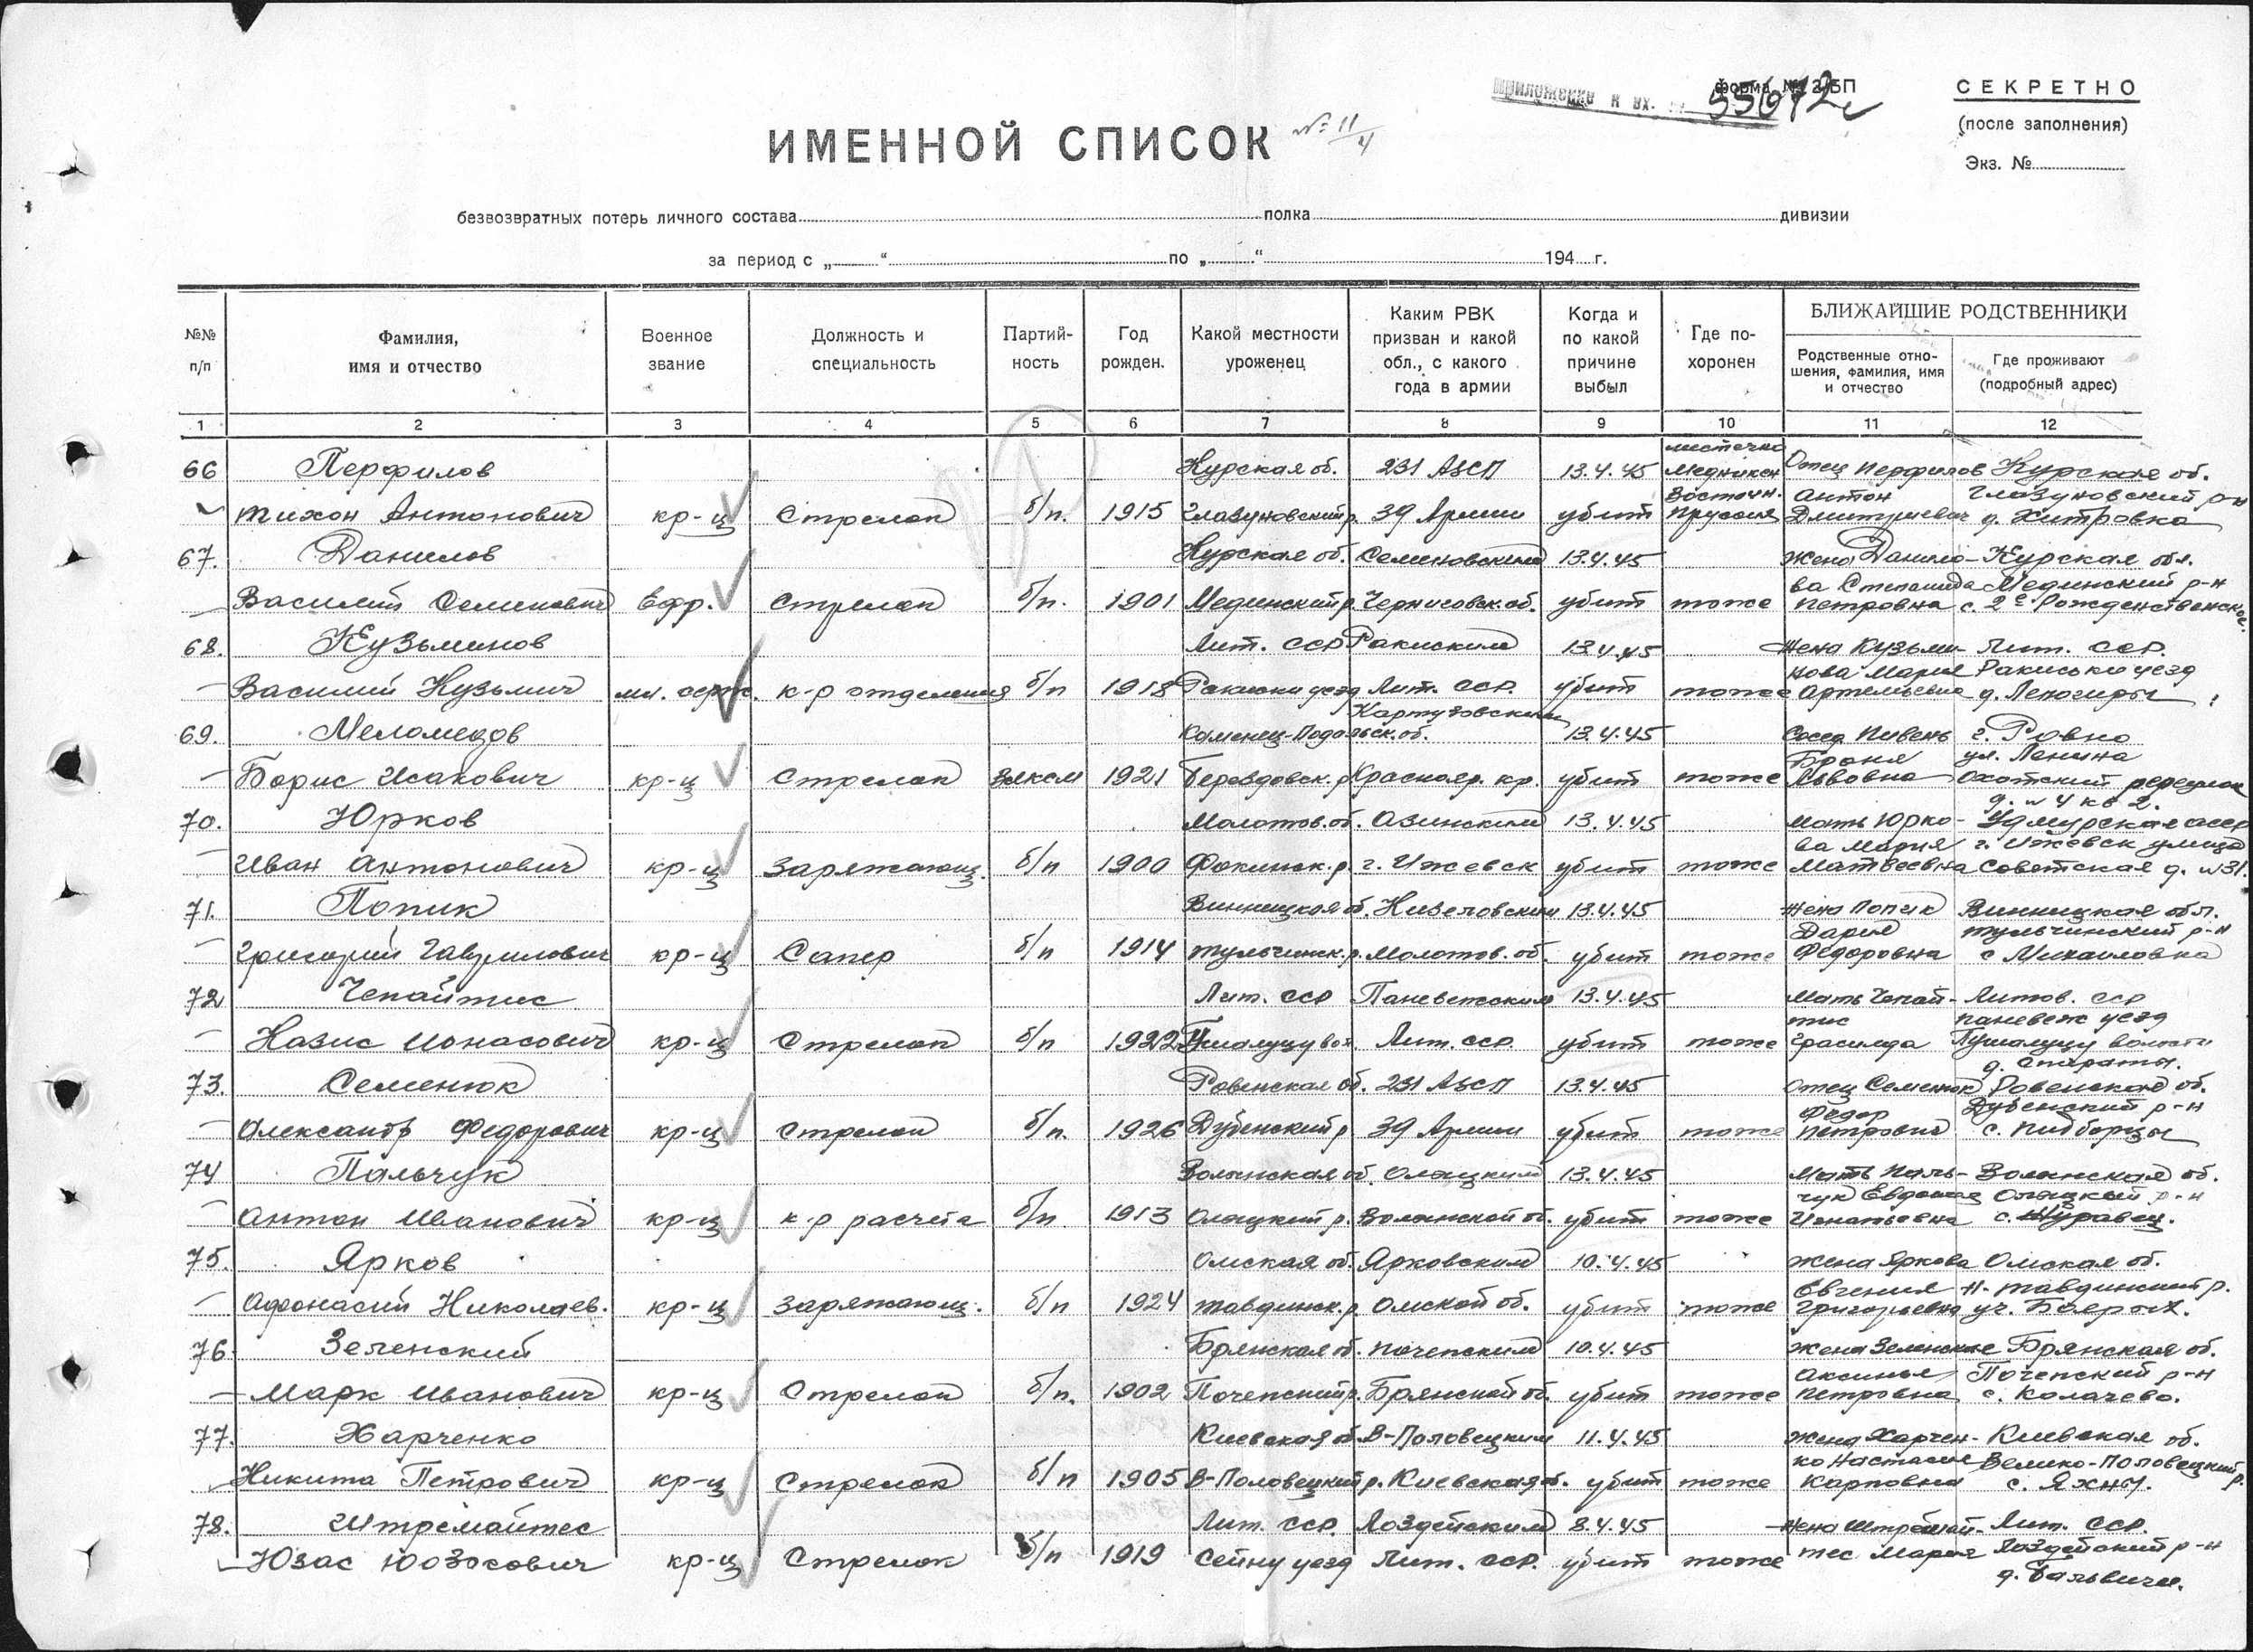 Приложение к вх. № 55672с
форма № 2/БП
СЕКРЕТНО
(после заполнения)
Экз. №
ИМЕННОЙ СПИСОК № 11/4
безвозвратных потерь личного состава полка дивизии
за период с „ “ по „ “ 194 г.
№№ п/п
Фамилия, имя и отчество
Военное звание
Должность и специальность
Партийность
Год рожден.
Какой местности уроженец
Каким РВК призван и какой обл., с какого года в армии
Когда и по какой причине выбыл
Где похоронен
БЛИЖАЙШИЕ РОДСТВЕННИКИ
Родственные отношения, фамилия, имя и отчество
Где проживают (подробный адрес)
1 2 3 4 5 6 7 8 9 10 11 12
66 Перфилов Курская об. 231 АЗСП 13.4.45 местечко Медникен Отец Перфилов Курская об.
Тихон Антонович кр-ц Стрелок б/п. 1915 Глазуновский р. 39 Армии убит Восточн. Пруссия Антон Дмитриевич Глазуновский р-н д. Хитровка
67. Данилов Курская об. Семеновским 13.4.45 жена Данило- Курская обл.
Василий Семенович Ефр. Стрелок б/п. 1901 Мединский р. Черниговск. об. убит тоже ва Степанида Петровна Мединский р-н с. 2е Рожденственское
68. Кузьминов Лит. ССР Ракиским 13.4.45 жена Кузьми- Лит. ССР.
Василий Кузьмич мл. серж. к-р отделения б/п 1918 Ракиски уезд Лит. ССР. убит тоже нова Мария Артемьевна Ракиски уезд д.
69. Меломедов Каменец-Подольск. об. 13.4.45 Сосед Пивень г. Ровно
Борис Исакович кр-ц Стрелок ВЛКСМ 1921 Берездовск. р. Краснояр. кр. убит тоже Броня Львовна ул. Ленина Охотский переулок д. № 4 кв 2.
70. Юрков Молотов. об. Азинским 13.4.45 мать Юрко- Удмурская АССР
Иван Антонович кр-ц Заряжающ. б/п 1900 Фокинск. р. г. Ижевск убит тоже ва Мария Матвеевна г. Ижевск улица Советская д. № 31.
71. Попик Винницкая об. Кизеловским 13.4.45 жена Попик Винницкая обл.
Григорий Гаврилович кр-ц Сапер б/п 1914 Тульчинск. р. Молотов. об. убит тоже Дария Федоровна Тульчинский р-н с Михайловка
72 Чепайтис Лит. ССР Паневежским 13.4.45 Мать Чепай- Литов. ССР
Казис Ионасович кр-ц Стрелок б/п 1922 вол. Лит. ССР. убит тоже тис паневеж уезд Пушалуцу волости д.
73. Семенюк Ровенская об. 231 АЗСП 13.4.45 отец Семенюк Ровенская об.
Александр Федорович кр-ц Стрелок б/п. 1926 Дубенский р 39 Армии убит тоже Федор Петрович Дубенский р-н с. Пидборцы
74 Пальчук Волынская об. Олыцким 13.4.45 Мать Паль- Волынская об.
Антон Иванович кр-ц к-р расчета б/п. 1913 Олыцкий р. Волынской об. убит тоже чук Евдокия Игнатьевна Олыцкий р-н с. Журавец.
75. Ярков Омская об. Ярковским 10.4.45 жена Яркова Омская об.
Афонасий Николаев. кр-ц Заряжающ. б/п 1924 Тавдинск. р. Омской об. убит тоже Евгения Григорьевна Н. Тавдинский р.
76. Зеленский Брянская об. Почепским 10.4.45 жена Зеленские Брянская об.
Марк Иванович кр-ц Стрелок б/п. 1902 Почепский р. Брянской об. убит тоже Аксинья Петровна Почепский р-н с. Калачево.
77. Харченко Киевская об. В-Половецким 11.4.45 жена Харчен- Киевская об.
Никита Петрович кр-ц Стрелок б/п 1905 В-Половецкий р. Киевская об. убит тоже ко Настасия Карповна Велико-Половецкий р. с. Яхны.
78. Штремайтес Лит. ССР. Лоздейским 8.4.45 жена Штремай- Лит. ССР.
Юзас Юозосович кр-ц Стрелок б/п 1919 Сейну уезд Лит. ССР. убит тоже тес Мария Лоздейский р-н д. Бальвичи.